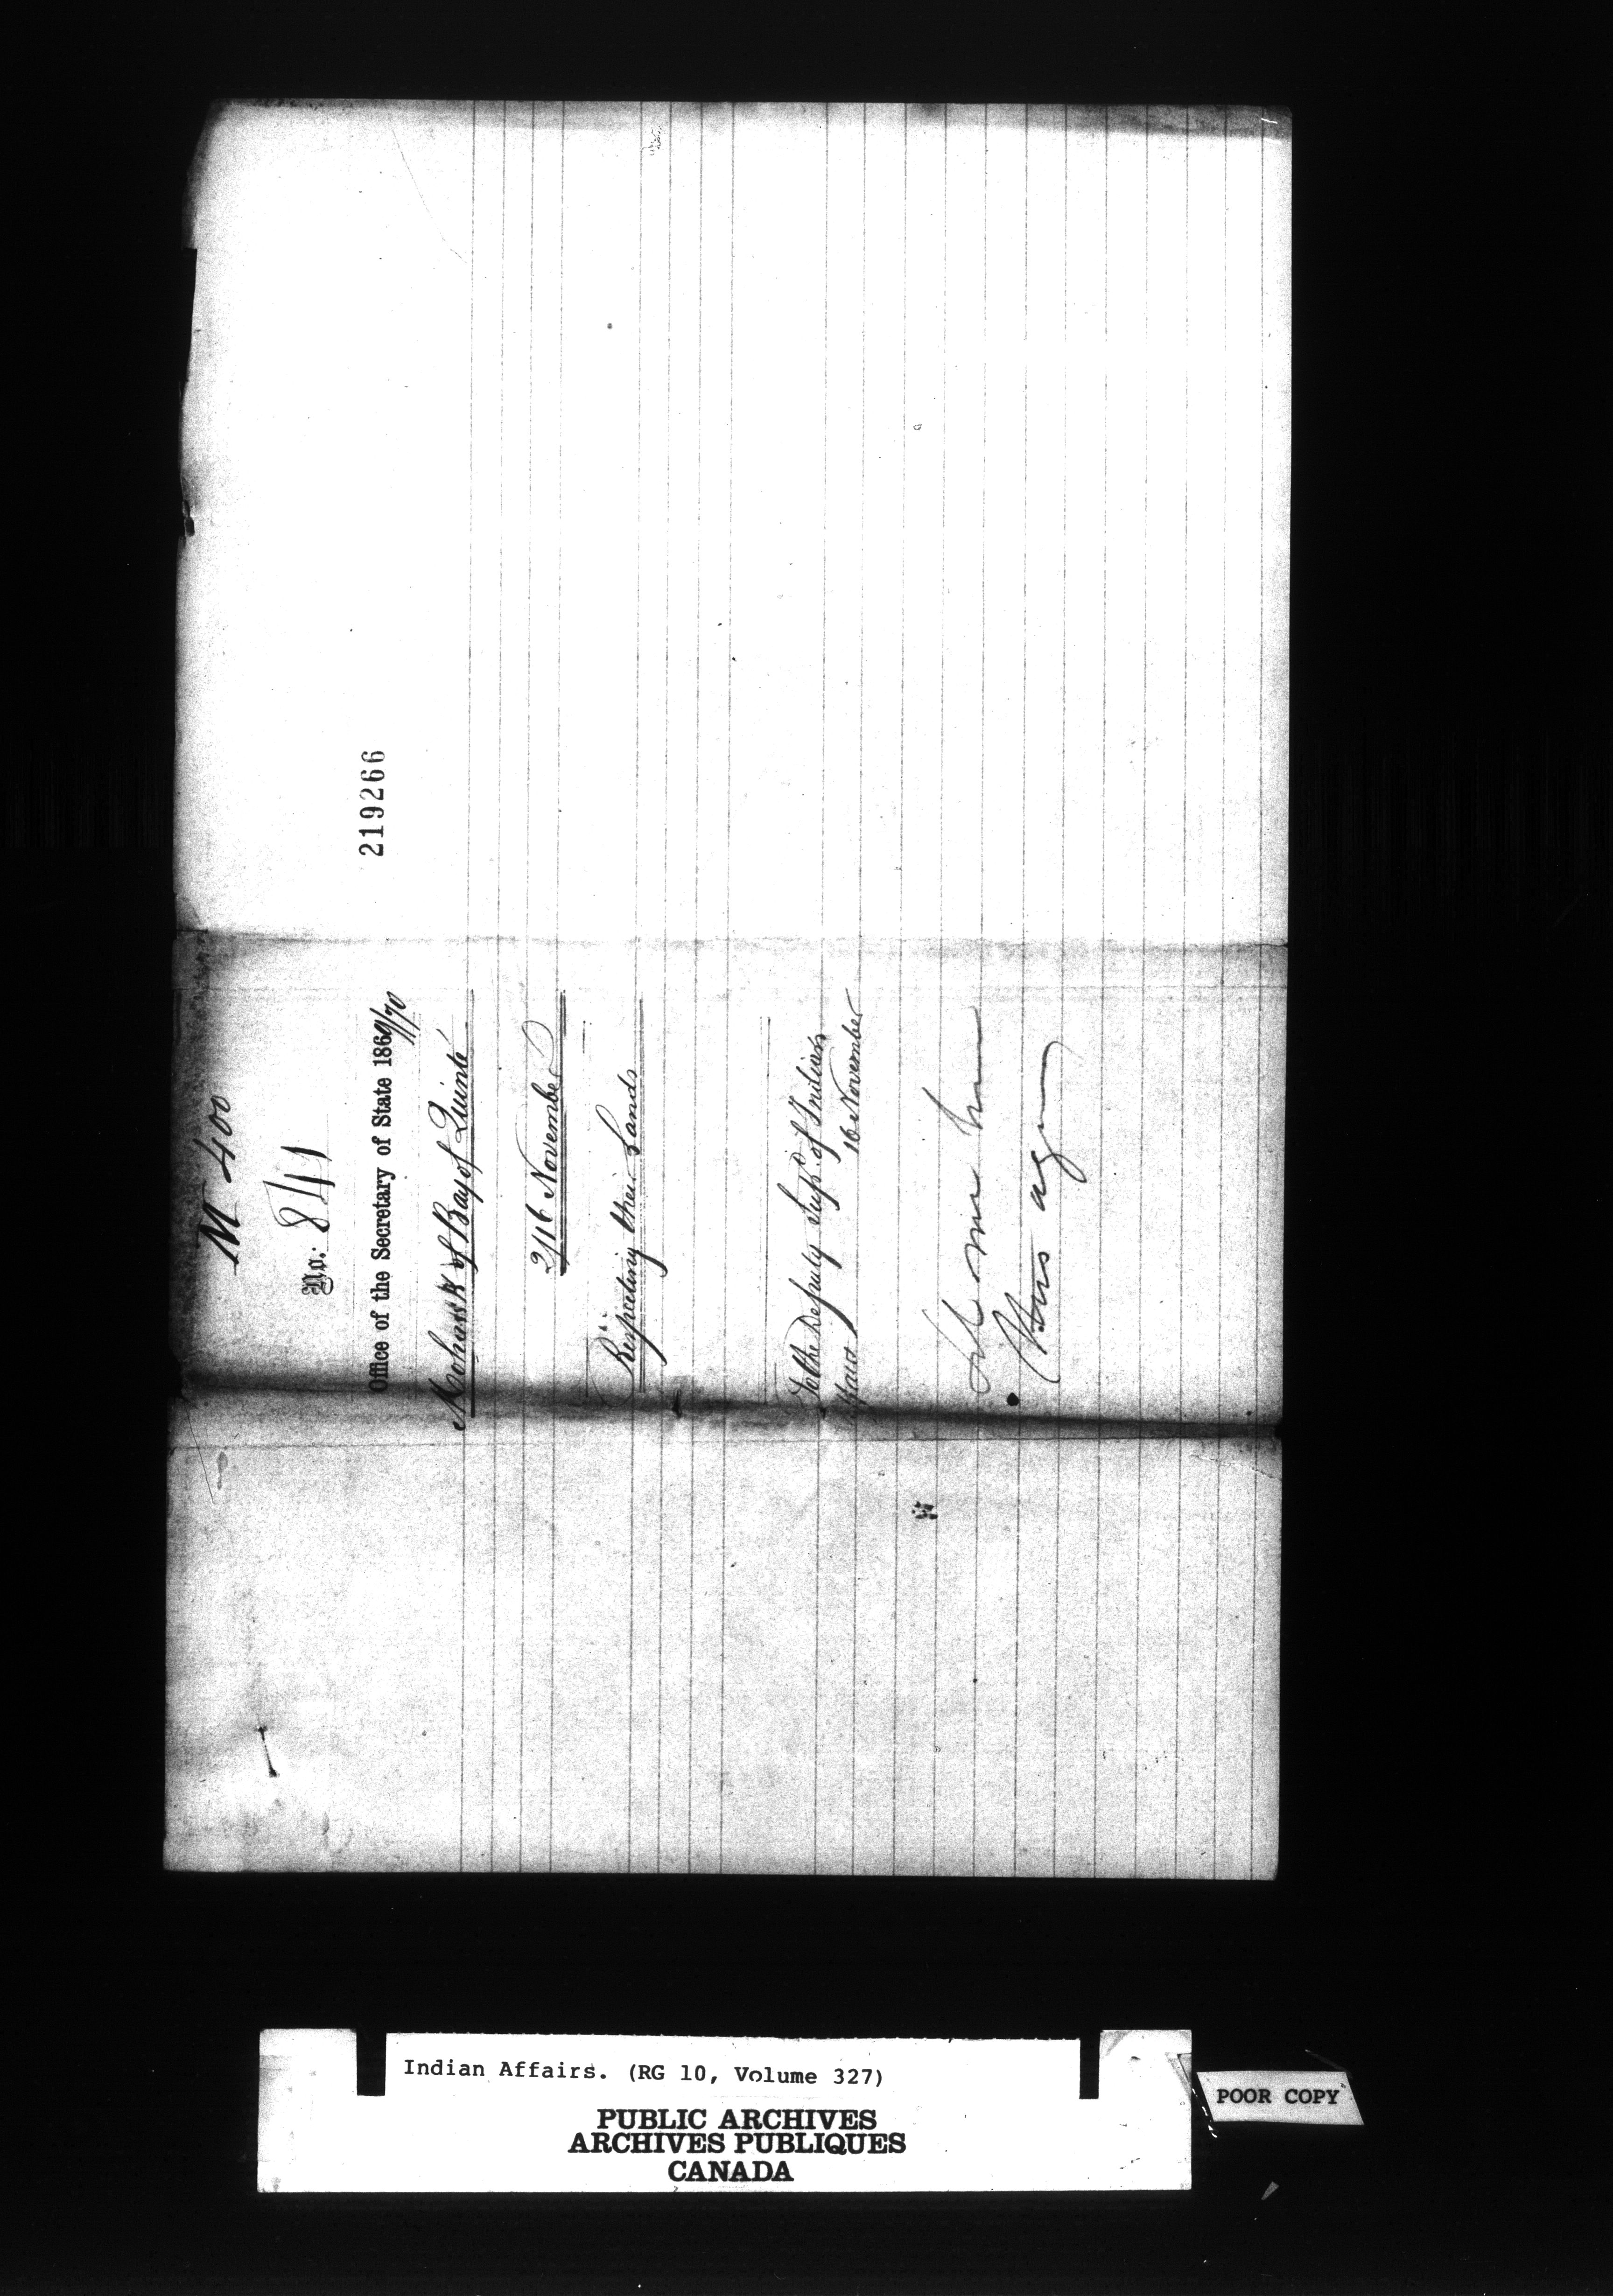 M 400
No: 841
Office of the Secretary of State 1869/70
219266
Mohawk of Bay of Quinté
2/16 November
Respecting their Lands
To the Deputy Sup. of Indian
Affairs
16 November
me
Indian Affairs. (RG 10, Volume 327)
PUBLIC ARCHIVES
ARCHIVES PUBLIQUES
CANADA
POOR COPY